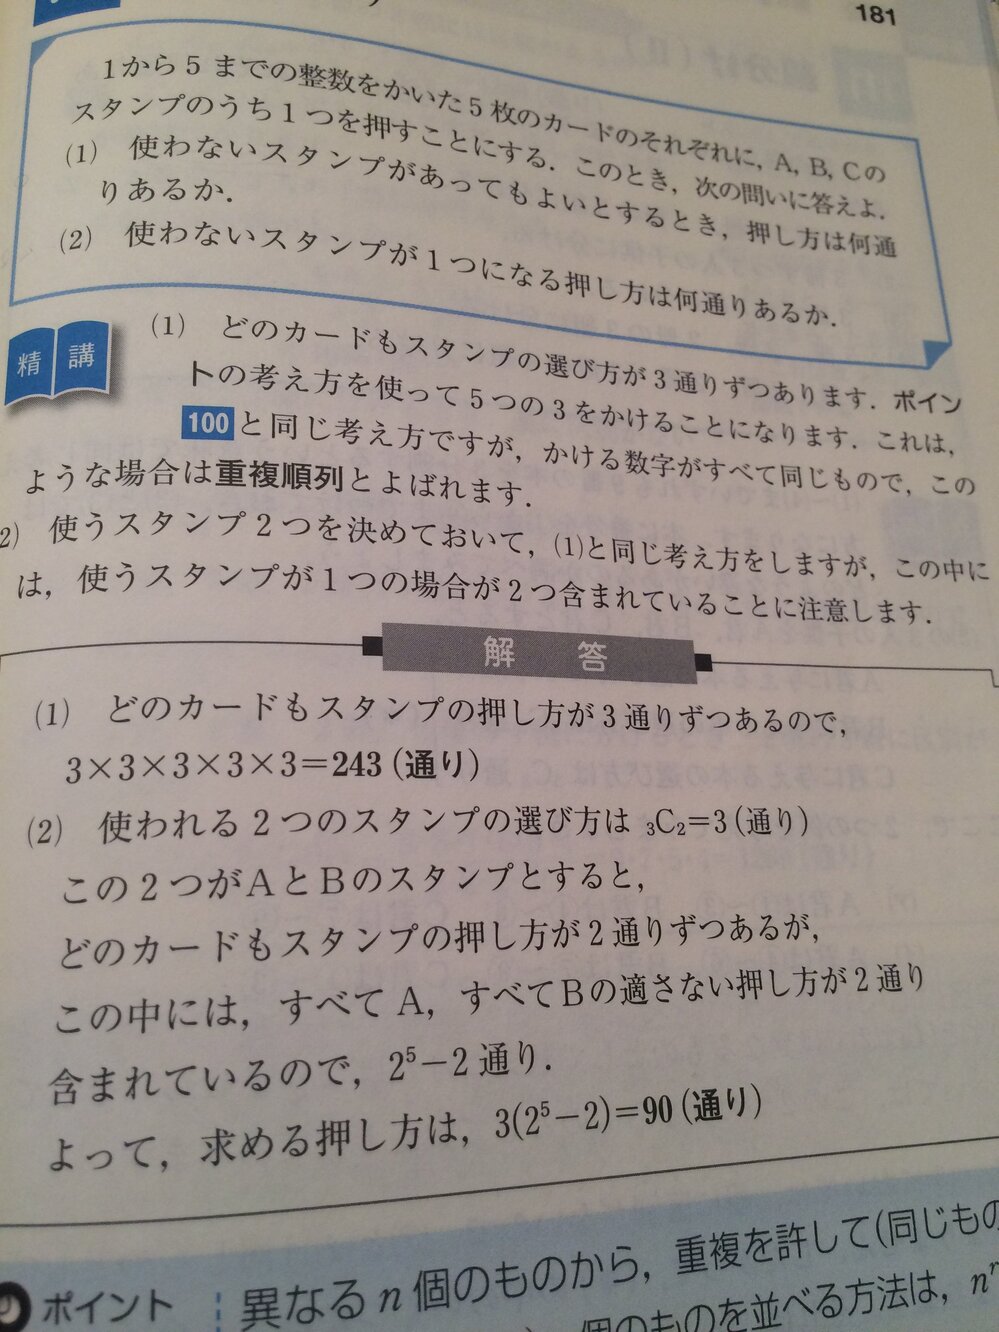 181
1から5までの整数をかいた5枚のカードのそれぞれに，A, B, Cの
スタンプのうち1つを押すことにする．このとき，次の問いに答えよ．
(1) 使わないスタンプがあってもよいとするとき，押し方は何通
りあるか．
(2) 使わないスタンプが1つになる押し方は何通りあるか．
精講
(1) どのカードもスタンプの選び方が3通りずつあります．ポイン
トの考え方を使って5つの3をかけることになります．これは，
100と同じ考え方ですが，かける数字がすべて同じもので，この
ような場合は重複順列とよばれます．
2) 使うスタンプ2つを決めておいて，(1)と同じ考え方をしますが，この中に
は，使うスタンプが1つの場合が2つ含まれていることに注意します．
解答
(1) どのカードもスタンプの押し方が3通りずつあるので，
3×3×3×3×3=243（通り）
(2) 使われる2つのスタンプの選び方は ₃C₂=3（通り）
この2つがAとBのスタンプとすると，
どのカードもスタンプの押し方が2通りずつあるが，
この中には，すべてA，すべてBの適さない押し方が2通り
含まれているので，2⁵−2通り．
よって，求める押し方は，3(2⁵−2)=90（通り）
ポイント
異なるn個のものから，重複を許して(同じもの
個のものを並べる方法は，nʳ